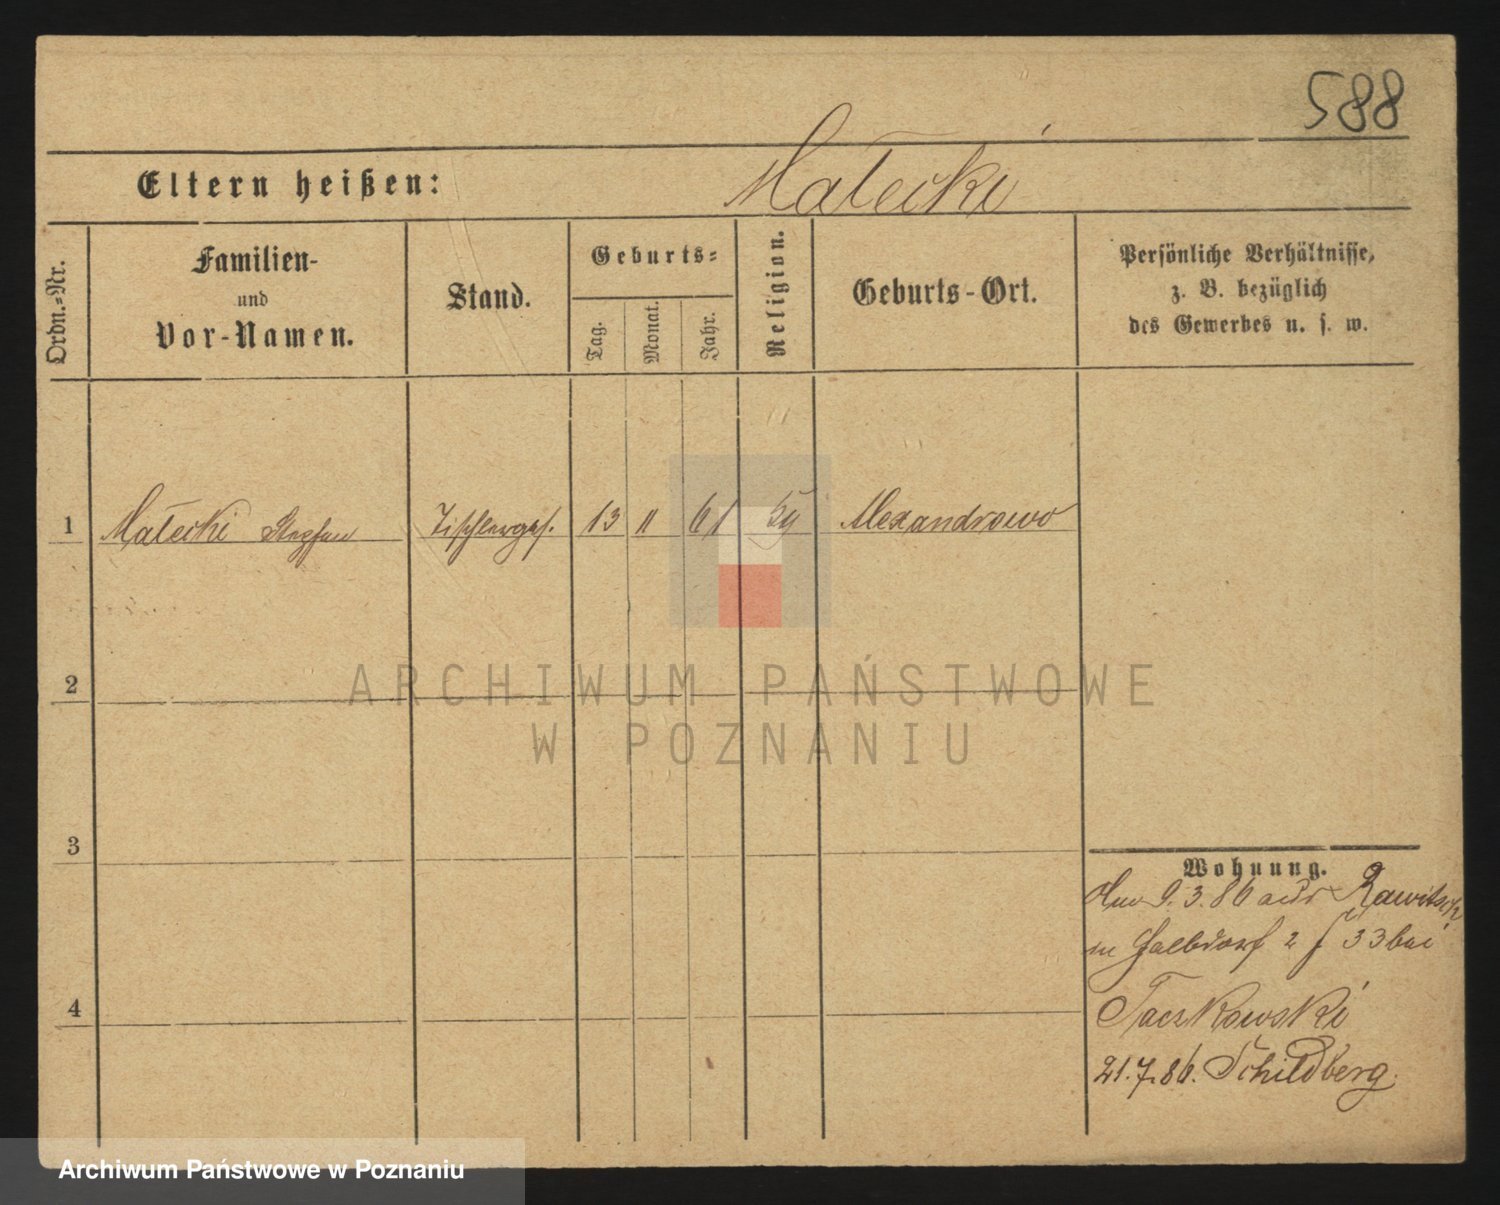 588
Eltern heißen: Małecki
Ordn.-Nr.
Familien-
und
Vor-Namen.
Stand.
Geburts-
Tag.
Monat.
Jahr.
Religion.
Geburts-Ort.
Persönliche Verhältnisse,
z. B. bezüglich
des Gewerbes u. s. w.
1 Małecki Stephan Tischlerges. 13 11 61 Alexandrowo
2
3
4
Wohnung.
9.3.86 aus Rawitsch
in 2 33 bei
Taczkowski
21.7.86. Schildberg.
ARCHIWUM PAŃSTWOWE
W POZNANIU
Archiwum Państwowe w Poznaniu